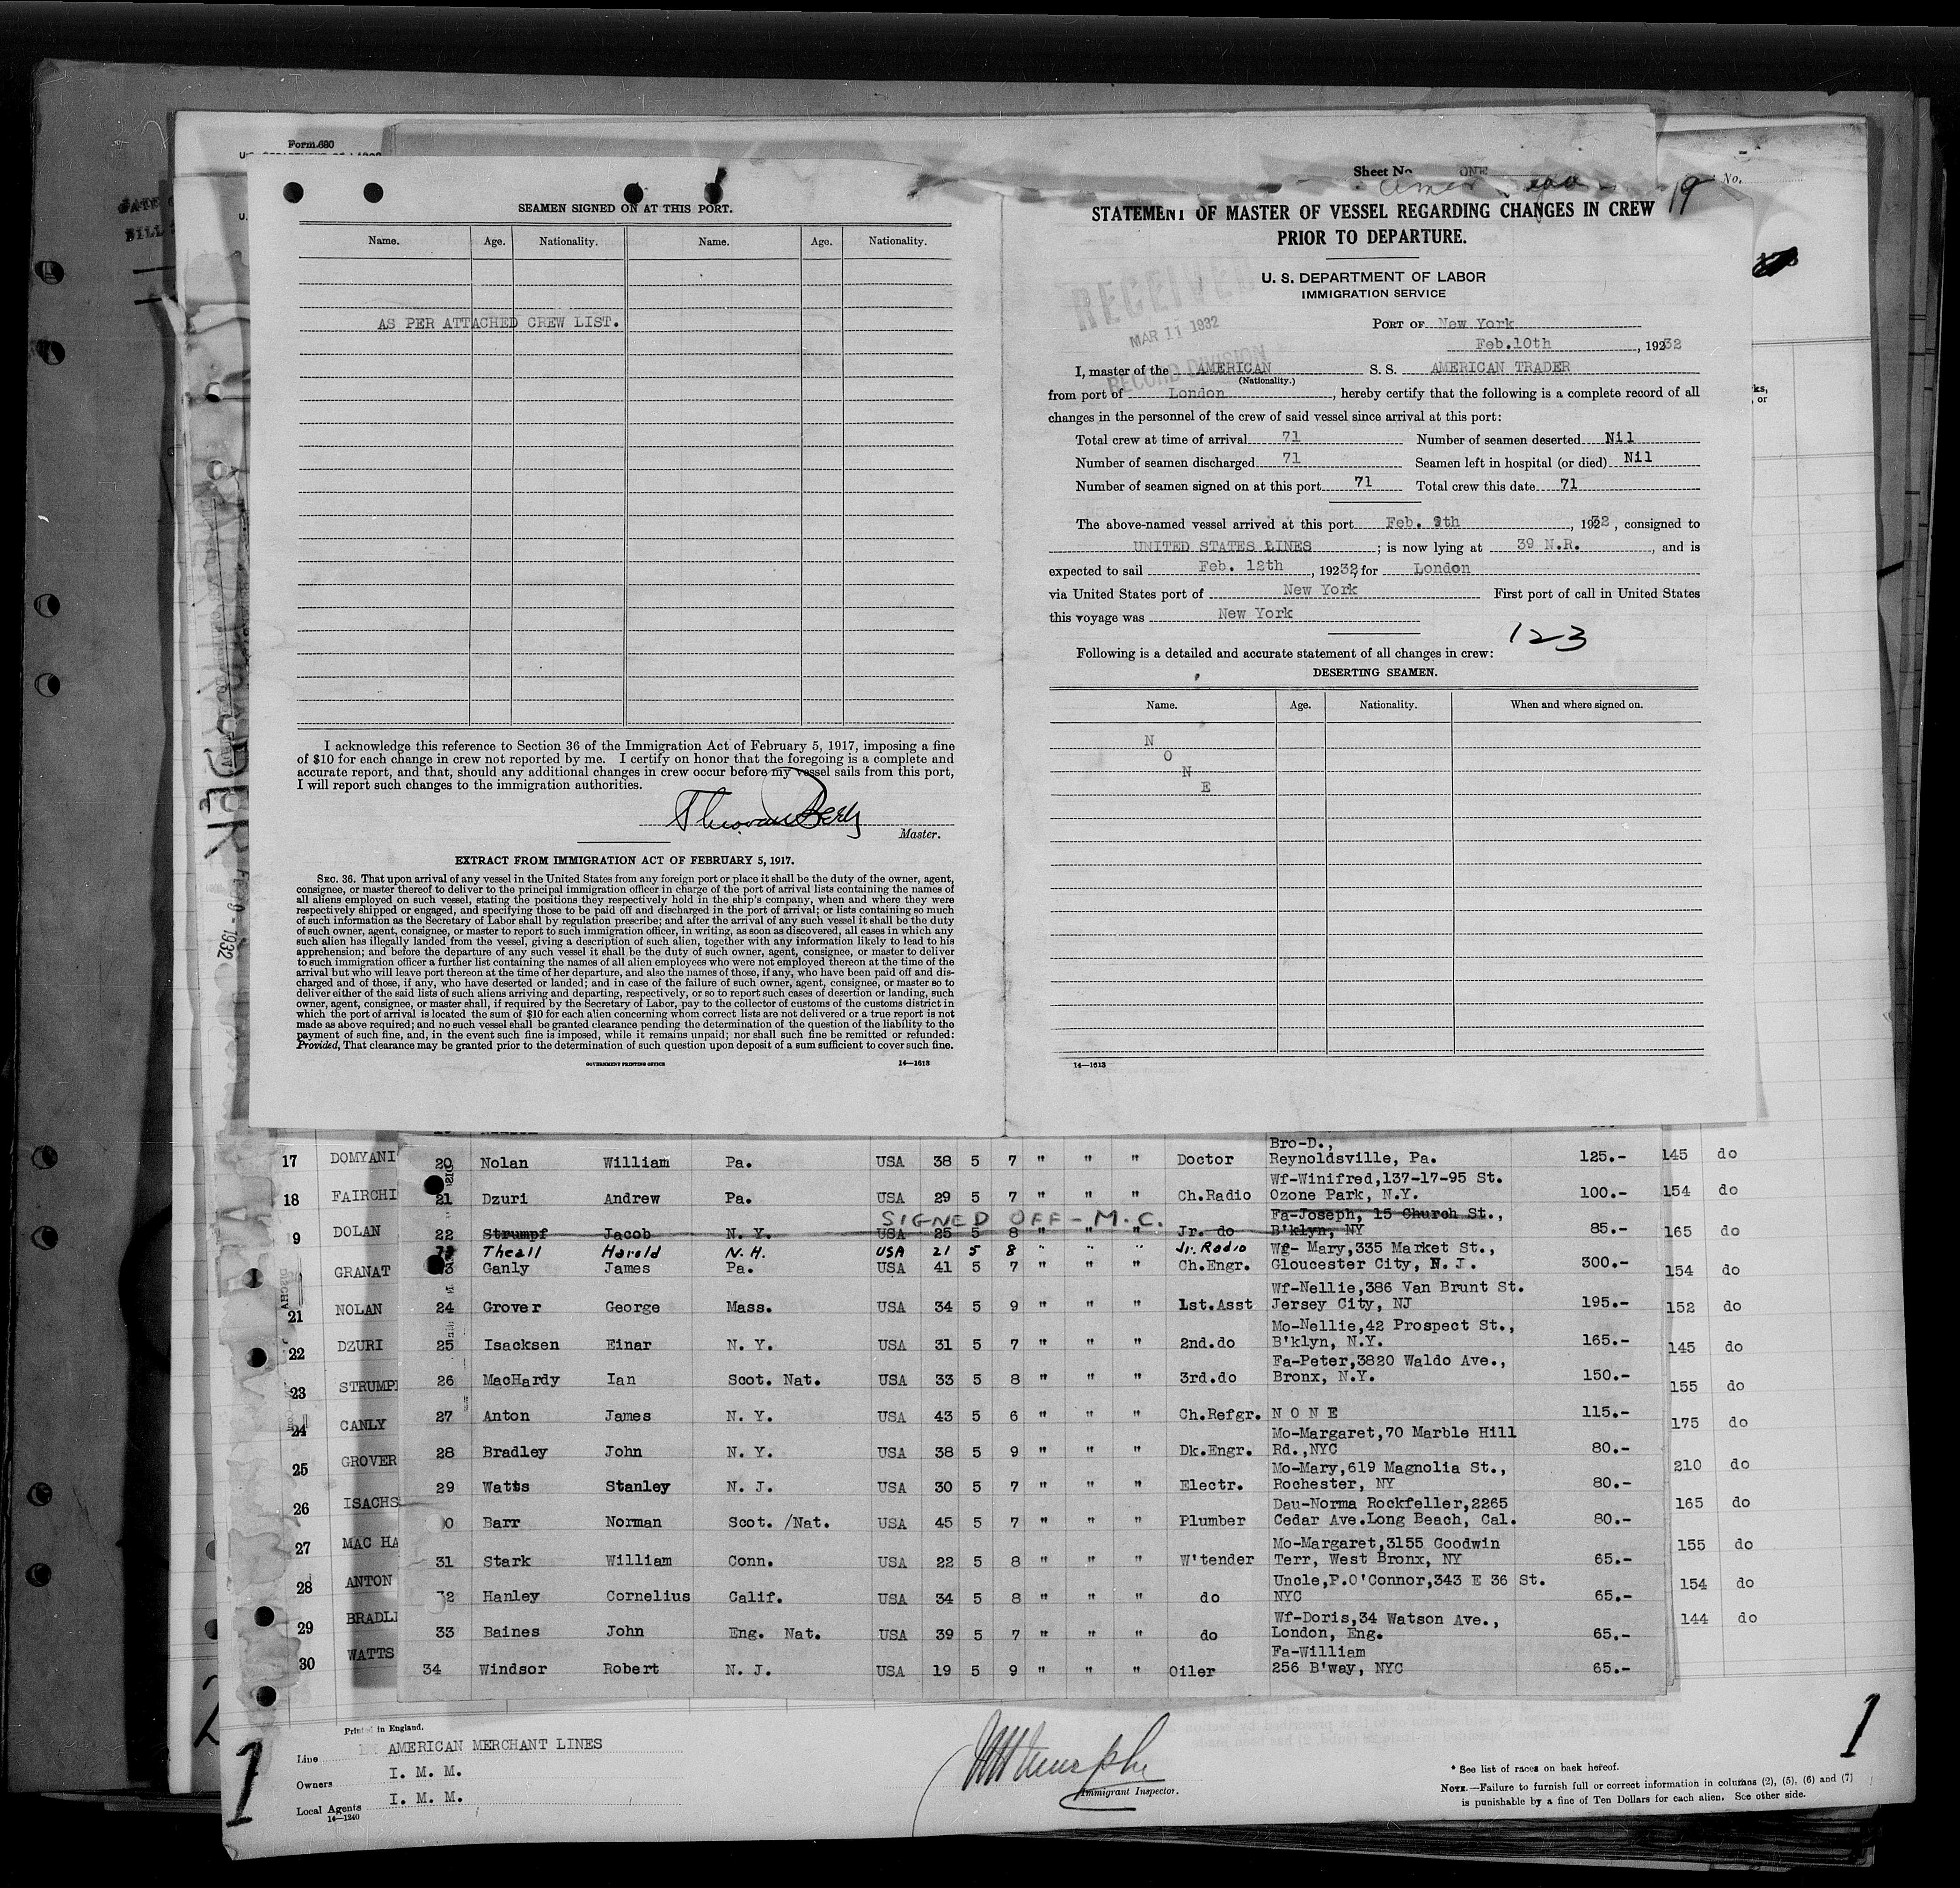 Form 680
SEAMEN SIGNED ON AT THIS PORT.
Name. Age. Nationality. Name. Age. Nationality.
AS PER ATTACHED CREW LIST.
I acknowledge this reference to Section 36 of the Immigration Act of February 5, 1917, imposing a fine
of $10 for each change in crew not reported by me. I certify on honor that the foregoing is a complete and
accurate report, and that, should any additional changes in crew occur before my vessel sails from this port,
I will report such changes to the immigration authorities.
Master.
EXTRACT FROM IMMIGRATION ACT OF FEBRUARY 5, 1917.
SEC. 36. That upon arrival of any vessel in the United States from any foreign port or place it shall be the duty of the owner, agent,
consignee, or master thereof to deliver to the principal immigration officer in charge of the port of arrival lists containing the names of
all aliens employed on such vessel, stating the positions they respectively hold in the ship's company, when and where they were
respectively shipped or engaged, and specifying those to be paid off and discharged in the port of arrival; or lists containing so much
of such information as the Secretary of Labor shall by regulation prescribe; and after the arrival of any such vessel it shall be the duty
of such owner, agent, consignee, or master to report to such immigration officer, in writing, as soon as discovered, all cases in which any
such alien has illegally landed from the vessel, giving a description of such alien, together with any information likely to lead to his
apprehension; and before the departure of any such vessel it shall be the duty of such owner, agent, consignee, or master to deliver
to such immigration officer a further list containing the names of all alien employees who were not employed thereon at the time of the
arrival but who will leave port thereon at the time of her departure, and also the names of those, if any, who have been paid off and dis-
charged and of those, if any, who have deserted or landed; and in case of the failure of such owner, agent, consignee, or master so to
deliver either of the said lists of such aliens arriving and departing, respectively, or so to report such cases of desertion or landing, such
owner, agent, consignee, or master shall, if required by the Secretary of Labor, pay to the collector of customs of the customs district in
which the port of arrival is located the sum of $10 for each alien concerning whom correct lists are not delivered or a true report is not
made as above required; and no such vessel shall be granted clearance pending the determination of the question of the liability to the
payment of such fine, and, in the event such fine is imposed, while it remains unpaid; nor shall such fine be remitted or refunded:
Provided, That clearance may be granted prior to the determination of such question upon deposit of a sum sufficient to cover such fine.
GOVERNMENT PRINTING OFFICE 14—1613
Sheet No. ONE
19
STATEMENT OF MASTER OF VESSEL REGARDING CHANGES IN CREW
PRIOR TO DEPARTURE.
U. S. DEPARTMENT OF LABOR
IMMIGRATION SERVICE
RECEIVED
MAR 11 1932
RECORD DIVISION
PORT OF New York
Feb.10th, 1932
I, master of the AMERICAN S. S. AMERICAN TRADER
(Nationality.)
from port of London, hereby certify that the following is a complete record of all
changes in the personnel of the crew of said vessel since arrival at this port:
Total crew at time of arrival 71 Number of seamen deserted Nil
Number of seamen discharged 71 Seamen left in hospital (or died) Nil
Number of seamen signed on at this port 71 Total crew this date 71
The above-named vessel arrived at this port Feb. 9th, 1932, consigned to
UNITED STATES LINES; is now lying at 39 N.R., and is
expected to sail Feb. 12th, 1932, for London
via United States port of New York First port of call in United States
this voyage was New York
123
Following is a detailed and accurate statement of all changes in crew:
DESERTING SEAMEN.
Name. Age. Nationality. When and where signed on.
N
O
N
E
14—1613
Bro-D.,
17 DOMYANI 20 Nolan William Pa. USA 38 5 7 " " " Doctor Reynoldsville, Pa. 125.- 145 do
Wf-Winifred,137-17-95 St.
18 FAIRCHI 21 Dzuri Andrew Pa. USA 29 5 7 " " " Ch.Radio Ozone Park, N.Y. 100.- 154 do
SIGNED OFF - M.C. Fa-Joseph, 15 Church St.,
9 DOLAN 22 Strumpf Jacob N. Y. USA 25 5 8 " " " Jr. do B'klyn, NY 85.- 165 do
Theall Harold N. H. USA 21 5 8 " " " Jr. Radio Wf- Mary,335 Market St.,
GRANAT Ganly James Pa. USA 41 5 7 " " " Ch.Engr. Gloucester City, N. J. 300.- 154 do
Wf-Nellie,386 Van Brunt St.
21 NOLAN 24 Grover George Mass. USA 34 5 9 " " " 1st.Asst Jersey City, NJ 195.- 152 do
Mo-Nellie,42 Prospect St.,
22 DZURI 25 Isacksen Einar N. Y. USA 31 5 7 " " " 2nd.do B'klyn, N.Y. 165.- 145 do
Fa-Peter,3820 Waldo Ave.,
23 STRUMP 26 MacHardy Ian Scot. Nat. USA 33 5 8 " " " 3rd.do Bronx, N.Y. 150.- 155 do
24 CANLY 27 Anton James N. Y. USA 43 5 6 " " " Ch.Refgr. N O N E 115.- 175 do
Mo-Margaret,70 Marble Hill
25 GROVER 28 Bradley John N. Y. USA 38 5 9 " " " Dk.Engr. Rd.,NYC 80.- 210 do
Mo-Mary,619 Magnolia St.,
26 ISACHS 29 Watts Stanley N. J. USA 30 5 7 " " " Electr. Rochester, NY 80.- 165 do
Dau-Norma Rockfeller,2265
27 MAC HA 0 Barr Norman Scot. /Nat. USA 45 5 7 " " " Plumber Cedar Ave.Long Beach, Cal. 80.- 155 do
Mo-Margaret,3155 Goodwin
28 ANTON 31 Stark William Conn. USA 22 5 8 " " " W'tender Terr, West Bronx, NY 65.- 154 do
Uncle,P.O'Connor,343 E 36 St.
29 BRADLI 32 Hanley Cornelius Calif. USA 34 5 8 " " " do NYC 65.- 144 do
Wf-Doris,34 Watson Ave.,
30 WATTS 33 Baines John Eng. Nat. USA 39 5 7 " " " do London, Eng. 65.-
Fa-William
34 Windsor Robert N. J. USA 19 5 9 " " " Oiler 256 B'way, NYC 65.-
Printed in England.
Line AMERICAN MERCHANT LINES
Owners I. M. M.
Local Agents I. M. M.
14—1240
Immigrant Inspector.
* See list of races on back hereof.
NOTE.—Failure to furnish full or correct information in columns (2), (5), (6) and (7)
is punishable by a fine of Ten Dollars for each alien. See other side.
1
1